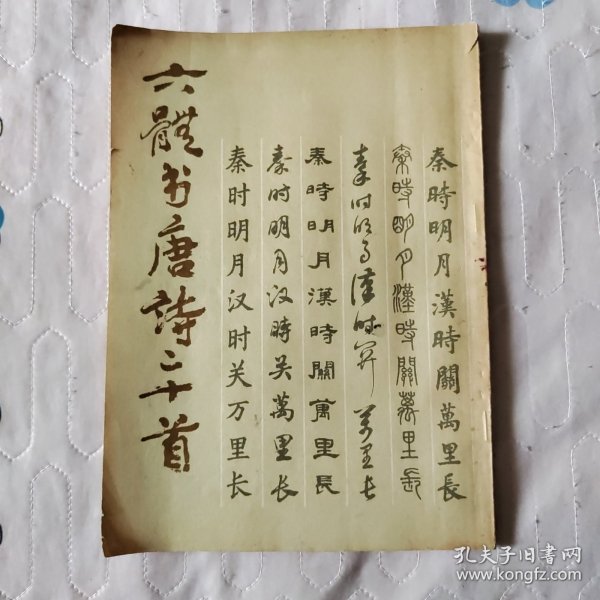 六體书唐詩二十首
秦時明月漢時關萬里長
秦時明月漢時關萬里長
秦时明月漢時關万里长
秦時明月漢時關萬里長
秦时明月汉時关萬里长
秦时明月汉时关万里长
孔夫子旧书网
www.kongfz.com